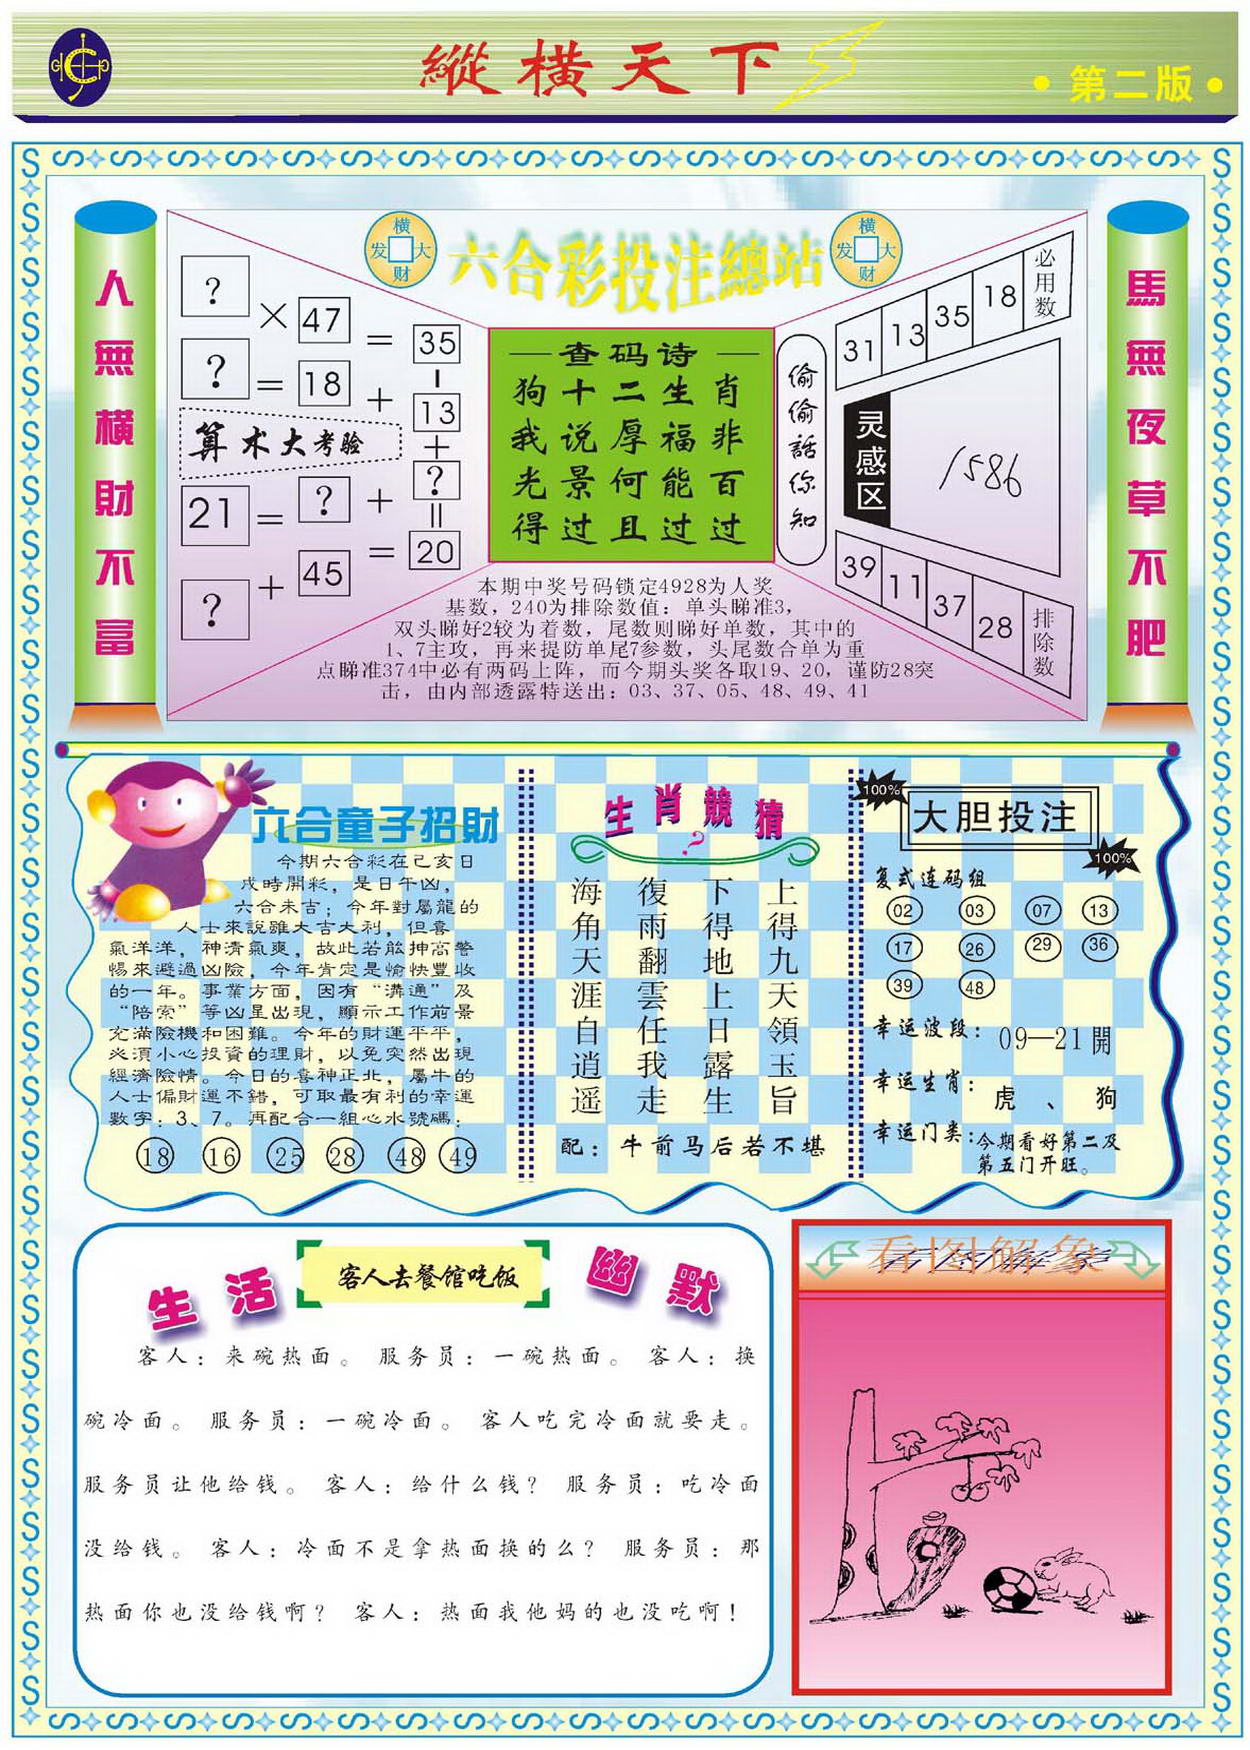 縱橫天下
·第二版·
人無橫財不富
馬無夜草不肥
橫大财发
六合彩投注總站
橫大财发
? × 47 = 35
? = 18 + 13
算术大考验
21 = ? + ?
? + 45 = 20
查码诗
狗十二生肖
我说厚福非
光景何能百
得过且过过
偷偷話你知
必用数
31 13 35 18
灵感区
1586
39 11 37 28
排除数
本期中奖号码锁定4928为人奖
基数，240为排除数值：单头睇准3，
双头睇好2较为着数，尾数则睇好单数，其中的
1、7主攻，再来提防单尾7参数，头尾数合单为重
点睇准374中必有两码上阵，而今期头奖各取19、20，谨防28突
击，由内部透露特送出：03、37、05、48、49、41
六合童子招財
今期六合彩在己亥日
戌時開彩，是日午凶，
六合未吉；今年對屬龍的
人士來說雖大吉大利，但喜
氣洋洋，神清氣爽，故此若能抻高警
惕來避過凶險，今年肯定是愉快豐收
的一年。事業方面，因有“溝通”及
“陪索”等凶星出現，顯示工作前景
充滿險機和困難。今年的財運平平，
必須小心投資的理財，以免突然出現
經濟險情。今日的喜神正北，屬牛的
人士偏財運不錯，可取最有利的幸運
數字：3、7。再配合一組心水號碼：
18 16 25 28 48 49
生肖競猜
?
上得九天領玉旨
下得地上日露生
復雨翻雲任我走
海角天涯自逍遥
配：牛前马后若不堪
100%
大胆投注
100%
复式连码组
02 03 07 13
17 26 29 36
39 48
幸运波段：09—21開
幸运生肖：虎、狗
幸运门类：今期看好第二及
第五门开旺。
生活
客人去餐馆吃饭
幽默
客人：来碗热面。 服务员：一碗热面。 客人：换
碗冷面。 服务员：一碗冷面。 客人吃完冷面就要走。
服务员让他给钱。 客人：给什么钱？ 服务员：吃冷面
没给钱。 客人：冷面不是拿热面换的么？ 服务员：那
热面你也没给钱啊？ 客人：热面我他妈的也没吃啊！
看图解象